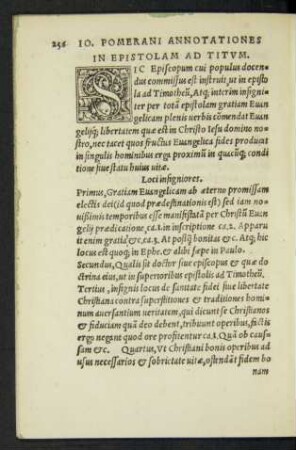 256 IO. POMERANI ANNOTATIONES
IN EPISTOLAM AD TITVM.
SIC Episcopum cui populus docen-
dus commissus est instruit, ut in episto
la ad Timotheũ, Atq; interim insigni-
ter per totã epistolam gratiam Euan
gelicam plenis uerbis cõmendat Euan
gelijq; libertatem quæ est in Christo Iesu domino no-
stro, nec tacet quos fructus Euangelica fides producat
in singulis hominibus erga proximũ in quacũq; condi
tione siue statu huius uitæ.
Loci insigniores.
Primus, Gratiam Euangelicam ab æterno promissam
electis dei (id quod prædestinationis est) sed iam no-
uissimis temporibus esse manifestatã per Christũ Euan
gelij prædicatione, ca.1. in inscriptione ca.2. Apparu
it enim gratia &c ca.3. At posq̃ bonitas &c. Atq; hic
locus est quoq; in Ephe. & alibi sæpe in Paulo.
Secundus, Qualis sit doctor siue episcopus & quæ do
ctrina eius, ut in superioribus epistolis ad Timotheũ.
Tertius, insignis locus de sanitate fidei siue libertate
Christiana contra superstitiones & traditiones homi-
num auersantium ueritatem, qui dicunt se Christianos
& fiduciam quã deo debent, tribuunt operibus, factis
ergo negant quod ore profitentur ca.1. Quã ob cau-
sam &c. Quartus, Vt Christiani bonis operibus ad
usus necessarios & sobrietate uitæ, ostendãt fidem bo
nam